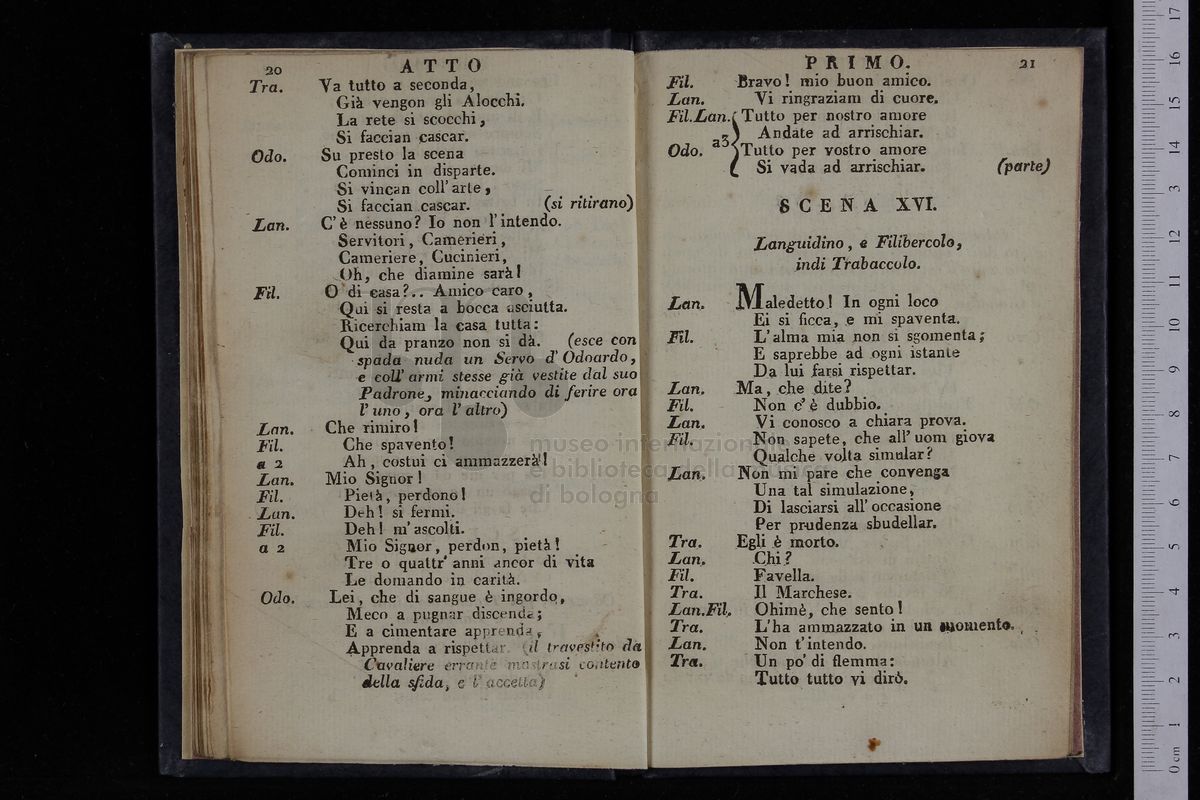 20 ATTO
Tra. Va tutto a seconda,
Già vengon gli Alocchi.
La rete si scocchi,
Si faccian cascar.
Odo. Su presto la scena
Cominci in disparte.
Si vincan coll'arte,
Si faccian cascar. (si ritirano)
Lan. C'è nessuno? Io non l'intendo.
Servitori, Camerieri,
Cameriere, Cucinieri,
Oh, che diamine sarà!
Fil. O di casa?.. Amico caro,
Qui si resta a bocca asciutta.
Ricerchiam la casa tutta:
Qui da pranzo non si dà. (esce con
spada nuda un Servo d'Odoardo,
e coll'armi stesse già vestite dal suo
Padrone, minacciando di ferire ora
l'uno, ora l'altro)
Lan. Che rimiro!
Fil. Che spavento!
a 2 Ah, costui ci ammazzerà!
Lan. Mio Signor!
Fil. Pietà, perdono!
Lan. Deh! si fermi.
Fil. Deh! m'ascolti.
a 2 Mio Signor, perdon, pietà!
Tre o quattr'anni ancor di vita
Le domando in carità.
Odo. Lei, che di sangue è ingordo,
Meco a pugnar discenda;
E a cimentare apprenda,
Apprenda a rispettar. (il travestito da
Cavaliere errante mostrasi contento
della sfida, e l'accetta)
PRIMO. 21
Fil. Bravo! mio buon amico.
Lan. Vi ringraziam di cuore.
Fil.Lan. Tutto per nostro amore
Andate ad arrischiar.
a3
Odo. Tutto per vostro amore
Si vada ad arrischiar. (parte)
SCENA XVI.
Languidino, e Filibercolo,
indi Trabaccolo.
Lan. Maledetto! In ogni loco
Ei si ficca, e mi spaventa.
Fil. L'alma mia non si sgomenta;
E saprebbe ad ogni istante
Da lui farsi rispettar.
Lan. Ma, che dite?
Fil. Non c'è dubbio.
Lan. Vi conosco a chiara prova.
Fil. Non sapete, che all'uom giova
Qualche volta simular?
Lan. Non mi pare che convenga
Una tal simulazione,
Di lasciarsi all'occasione
Per prudenza sbudellar.
Tra. Egli è morto.
Lan. Chi?
Fil. Favella.
Tra. Il Marchese.
Lan.Fil. Ohimè, che sento!
Tra. L'ha ammazzato in un momento.
Lan. Non t'intendo.
Tra. Un po' di flemma:
Tutto tutto vi dirò.
museo internazionale
e biblioteca della musica
di bologna
0 cm 1 2 3 4 5 6 7 8 9 10 11 12 13 14 15 16 17